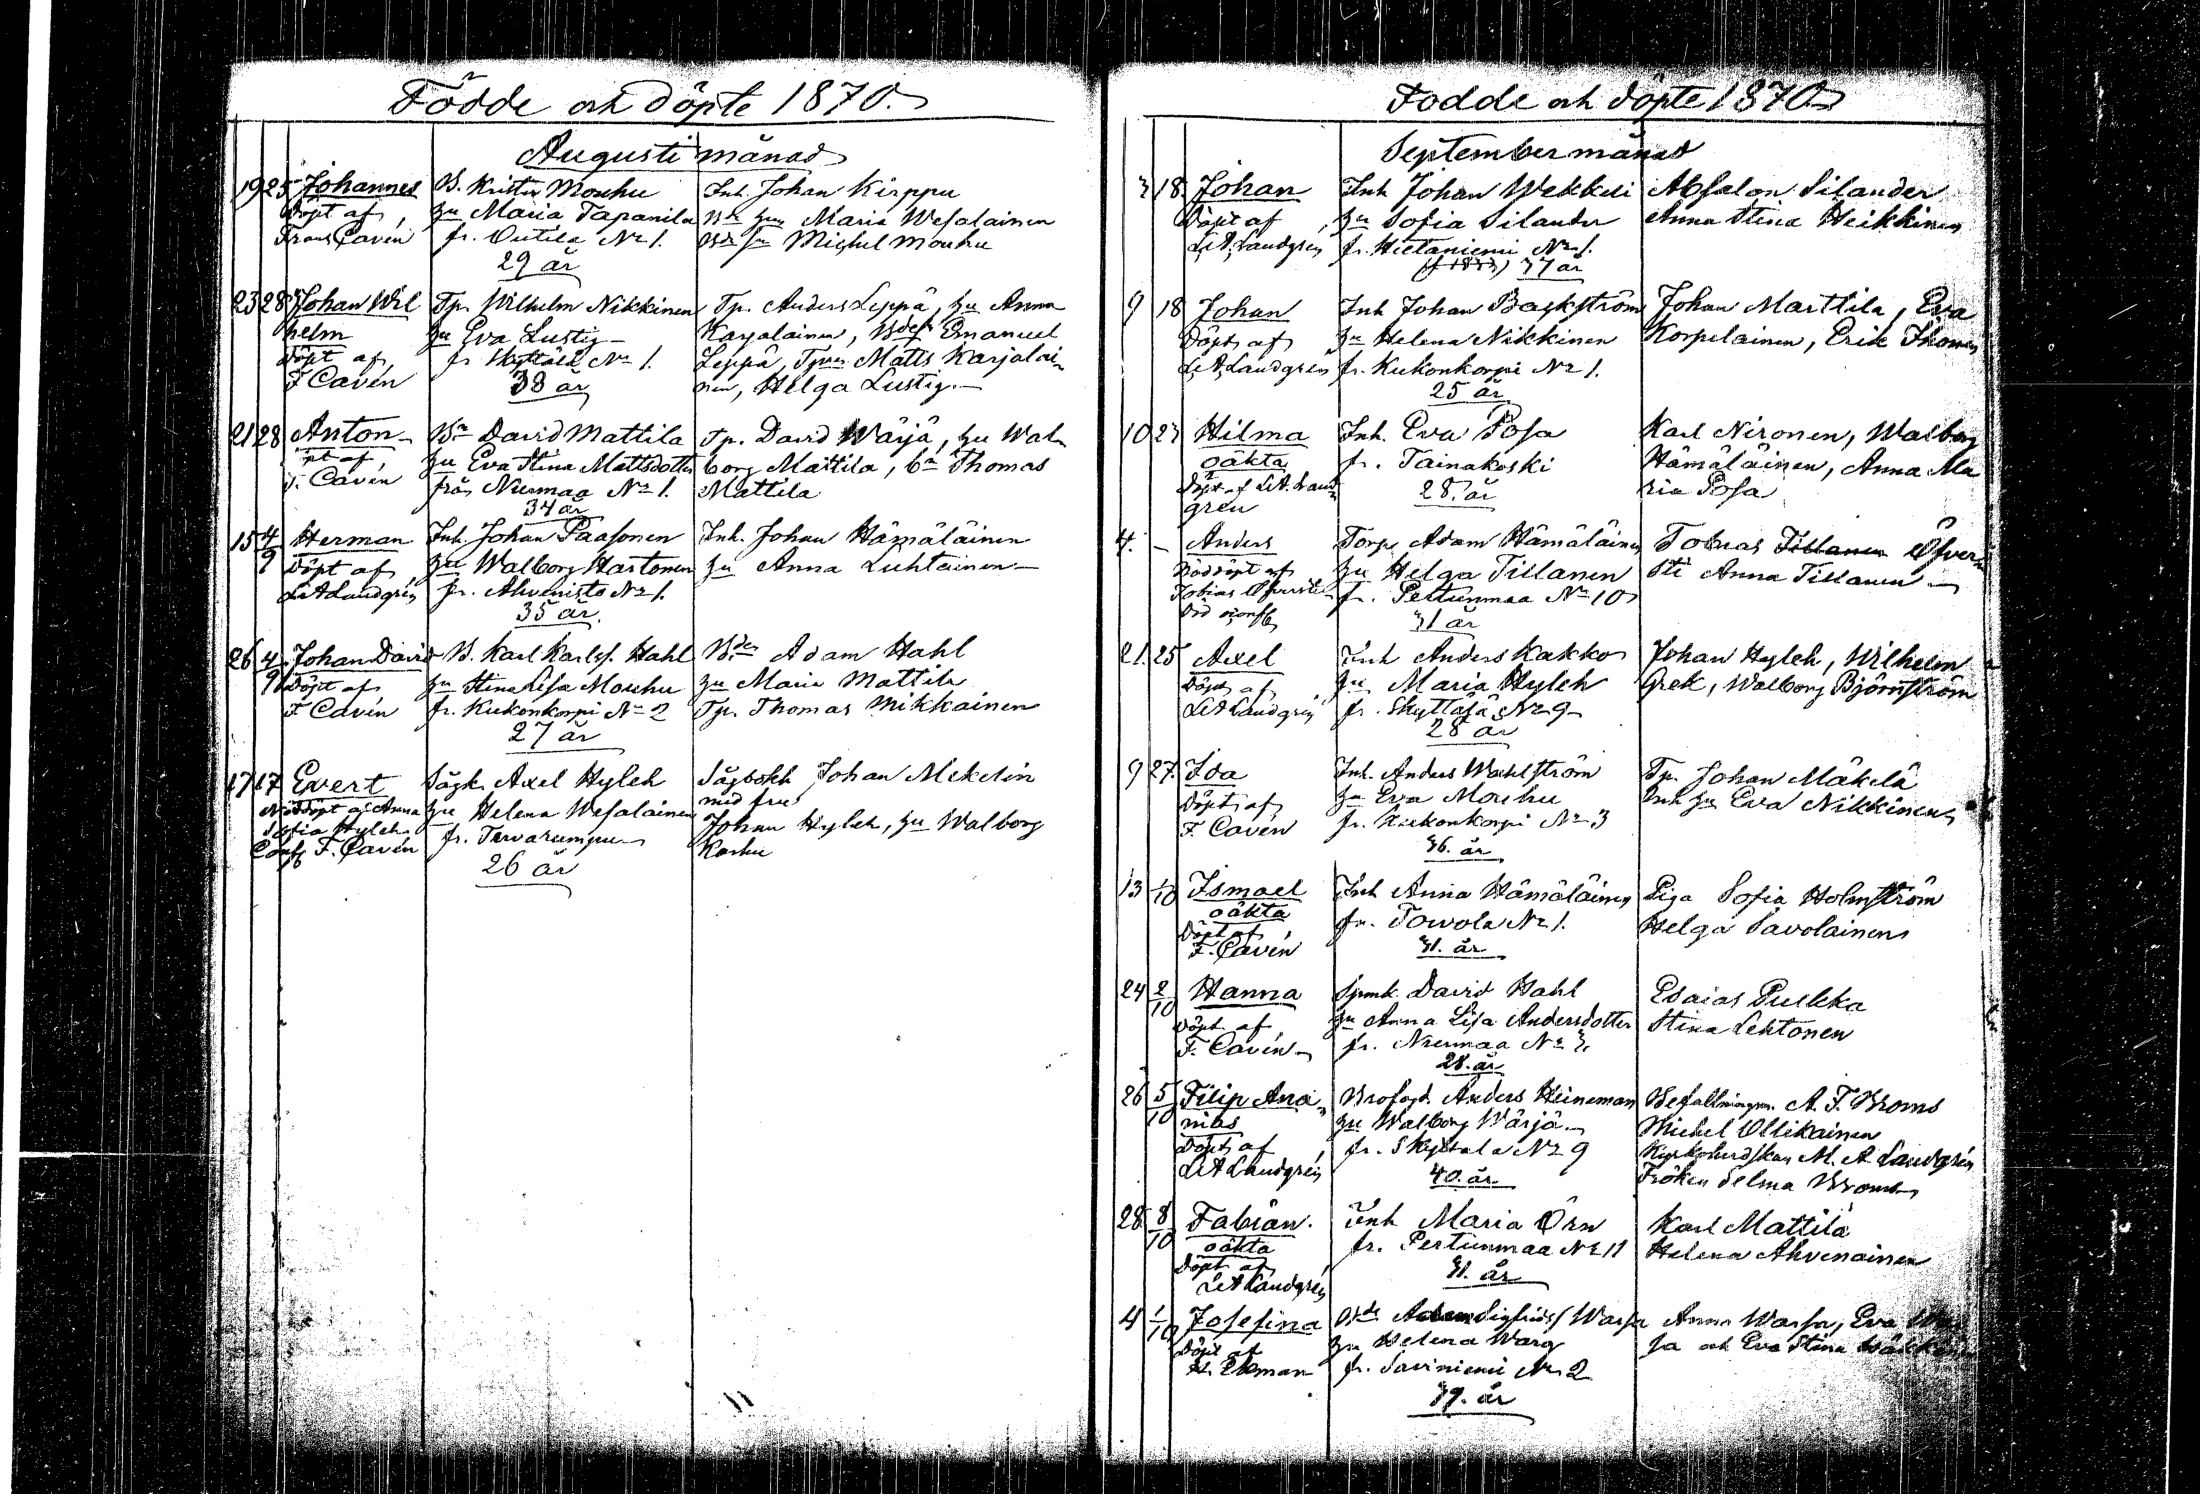 Födde och döpte 1870.
Augusti månad
19 25 Johannes B. Krister Mouhu Inh. Johan Kirppu
Döpt af hu Maria Tapanila Bde hu Maria Wesalainen
Frans Cavén fr. Outila No 1. Michel Mouhu
29 år
23 28 Johan Wil Tp. Wilhelm Nikkinen Tp. Anders Leppä, hu Anna
helm hu Eva Lustig Karjalainen, Bdes Emanuel
Döpt af fr No 1. Leppä, Matts Karjalai
F Cavén 38 år nen, Helga Lustig.
21 28 Anton Bn David Mattila Tp. David Wärjä, hu Wal
pt af hu Eva Stina Mattsdotter borg Mattila, bn Thomas
F. Cavén från Niemaa No 1. Mattila
34 år
15 4/9 Herman Inh. Johan Paasonen Inh. Johan Hämäläinen
Döpt af hu Walborg Hartonen hu Anna Luhtainen
L A Landgrén fr. Ahvenisto No 1.
35 år.
26 4/9 Johan David B. Karl Karlss. Hahl Bdes Adam Hahl
Döpt af hu Stina Lisa Mouhu hu Maria Mattila
F Cavén fr. Kukonkorpi No 2 Tp. Thomas Nikkäinen
27 år
17 17 Evert Sågk. Axel Hyleh Sågbokh Johan Mekelin
Nöddöpt af Anna hu Helena Wesalainen med fru
Sofia Hyleh fr. Tervarumpu Johan Hyleh, hu Walborg
Conf F. Cavén Karhu
26 år
Födde och döpte 1870
September månad
3 18 Johan Inh Johan Wekkeli Absalon Silander
Döpt af hu Sofia Silander Anna Stina Heikkinen
L.A. Landgrén fr. Hietaniemi No 1.
37 år
9 18 Johan Inh Johan Backström Johan Marttila, Eva
Döpt af hu Helena Nikkinen Korpelainen, Erik
L.A. Landgrén fr. Kukonkorpi No 1.
25 år
10 23 Hilma Inh. Eva Posa Karl Nironen, Walborg
oäkta fr. Tainakoski Hämäläinen, Anna Ma
Döpt af L.A. Land 28. år ria Posa
gren
4. – Anders Torp Adam Hämäläinen Tobias Öfver
Nöddöpt af hu Helga Tillanen sti Anna Tillanen
Tobias Öfversti fr. Pertunmaa No 10
31 år
21. 25 Axel Inh Anders Kakko Johan Hyleh, Wilhelm
Döpt af hu Maria Hyleh Grek, Walborg Björnström
L A Landgrén fr. No 9
28 år
9 27. Ida Inh. Anders Wahlström Tp. Johan Mäkelä
Döpt af hu Eva Mouhu Inh hu Eva Nikkinen
F. Cavén fr. Kukonkorpi No 3
36. år
13 1/10 Ismael Inh Anna Hämäläinen Piga Sofia Holmström
oäkta fr. Towola No 1. Helga Savolainen
Döpt af
F. Cavén 31. år
24 2/10 Hanna David Hahl Esaias Pulkka
Döpt af hu Anna Lisa Andersdotter Stina Lehtonen
F. Cavén fr. Niemaa No 3
28. år
26 5/10 Filip Ana Brofogd. Anders Heineman Befallningsm. A. F. Broms
nias hu Walborg Wärjä Michel Ollikainen
Döpt af fr. Skyttala No 9 Kyrkoherdskan M. A Landgrén
L A Landgrén 40. år Fröken Selma Broms
28 8/10 Fabian. Inh Maria Örn Karl Mattila
oäkta fr. Pertunmaa No 11 Helena Ahvenainen
Döpt af
L A Landgrén 31. år
4 1/10 Josefina Bde Adam Sigfridss Warsa Anna Warsa, Eva
Döpt af hu Helena Warg sa och Eva Stina
Ekman fr. Saviniemi No 2
39. år